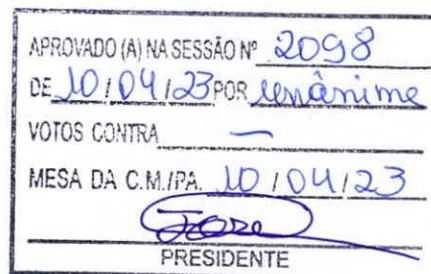 APROVADO (A) NA SESSÃO Nº 2098
DE 10/04/23 POR unânime
VOTOS CONTRA —
MESA DA C.M./PA. 10/04/23
PRESIDENTE